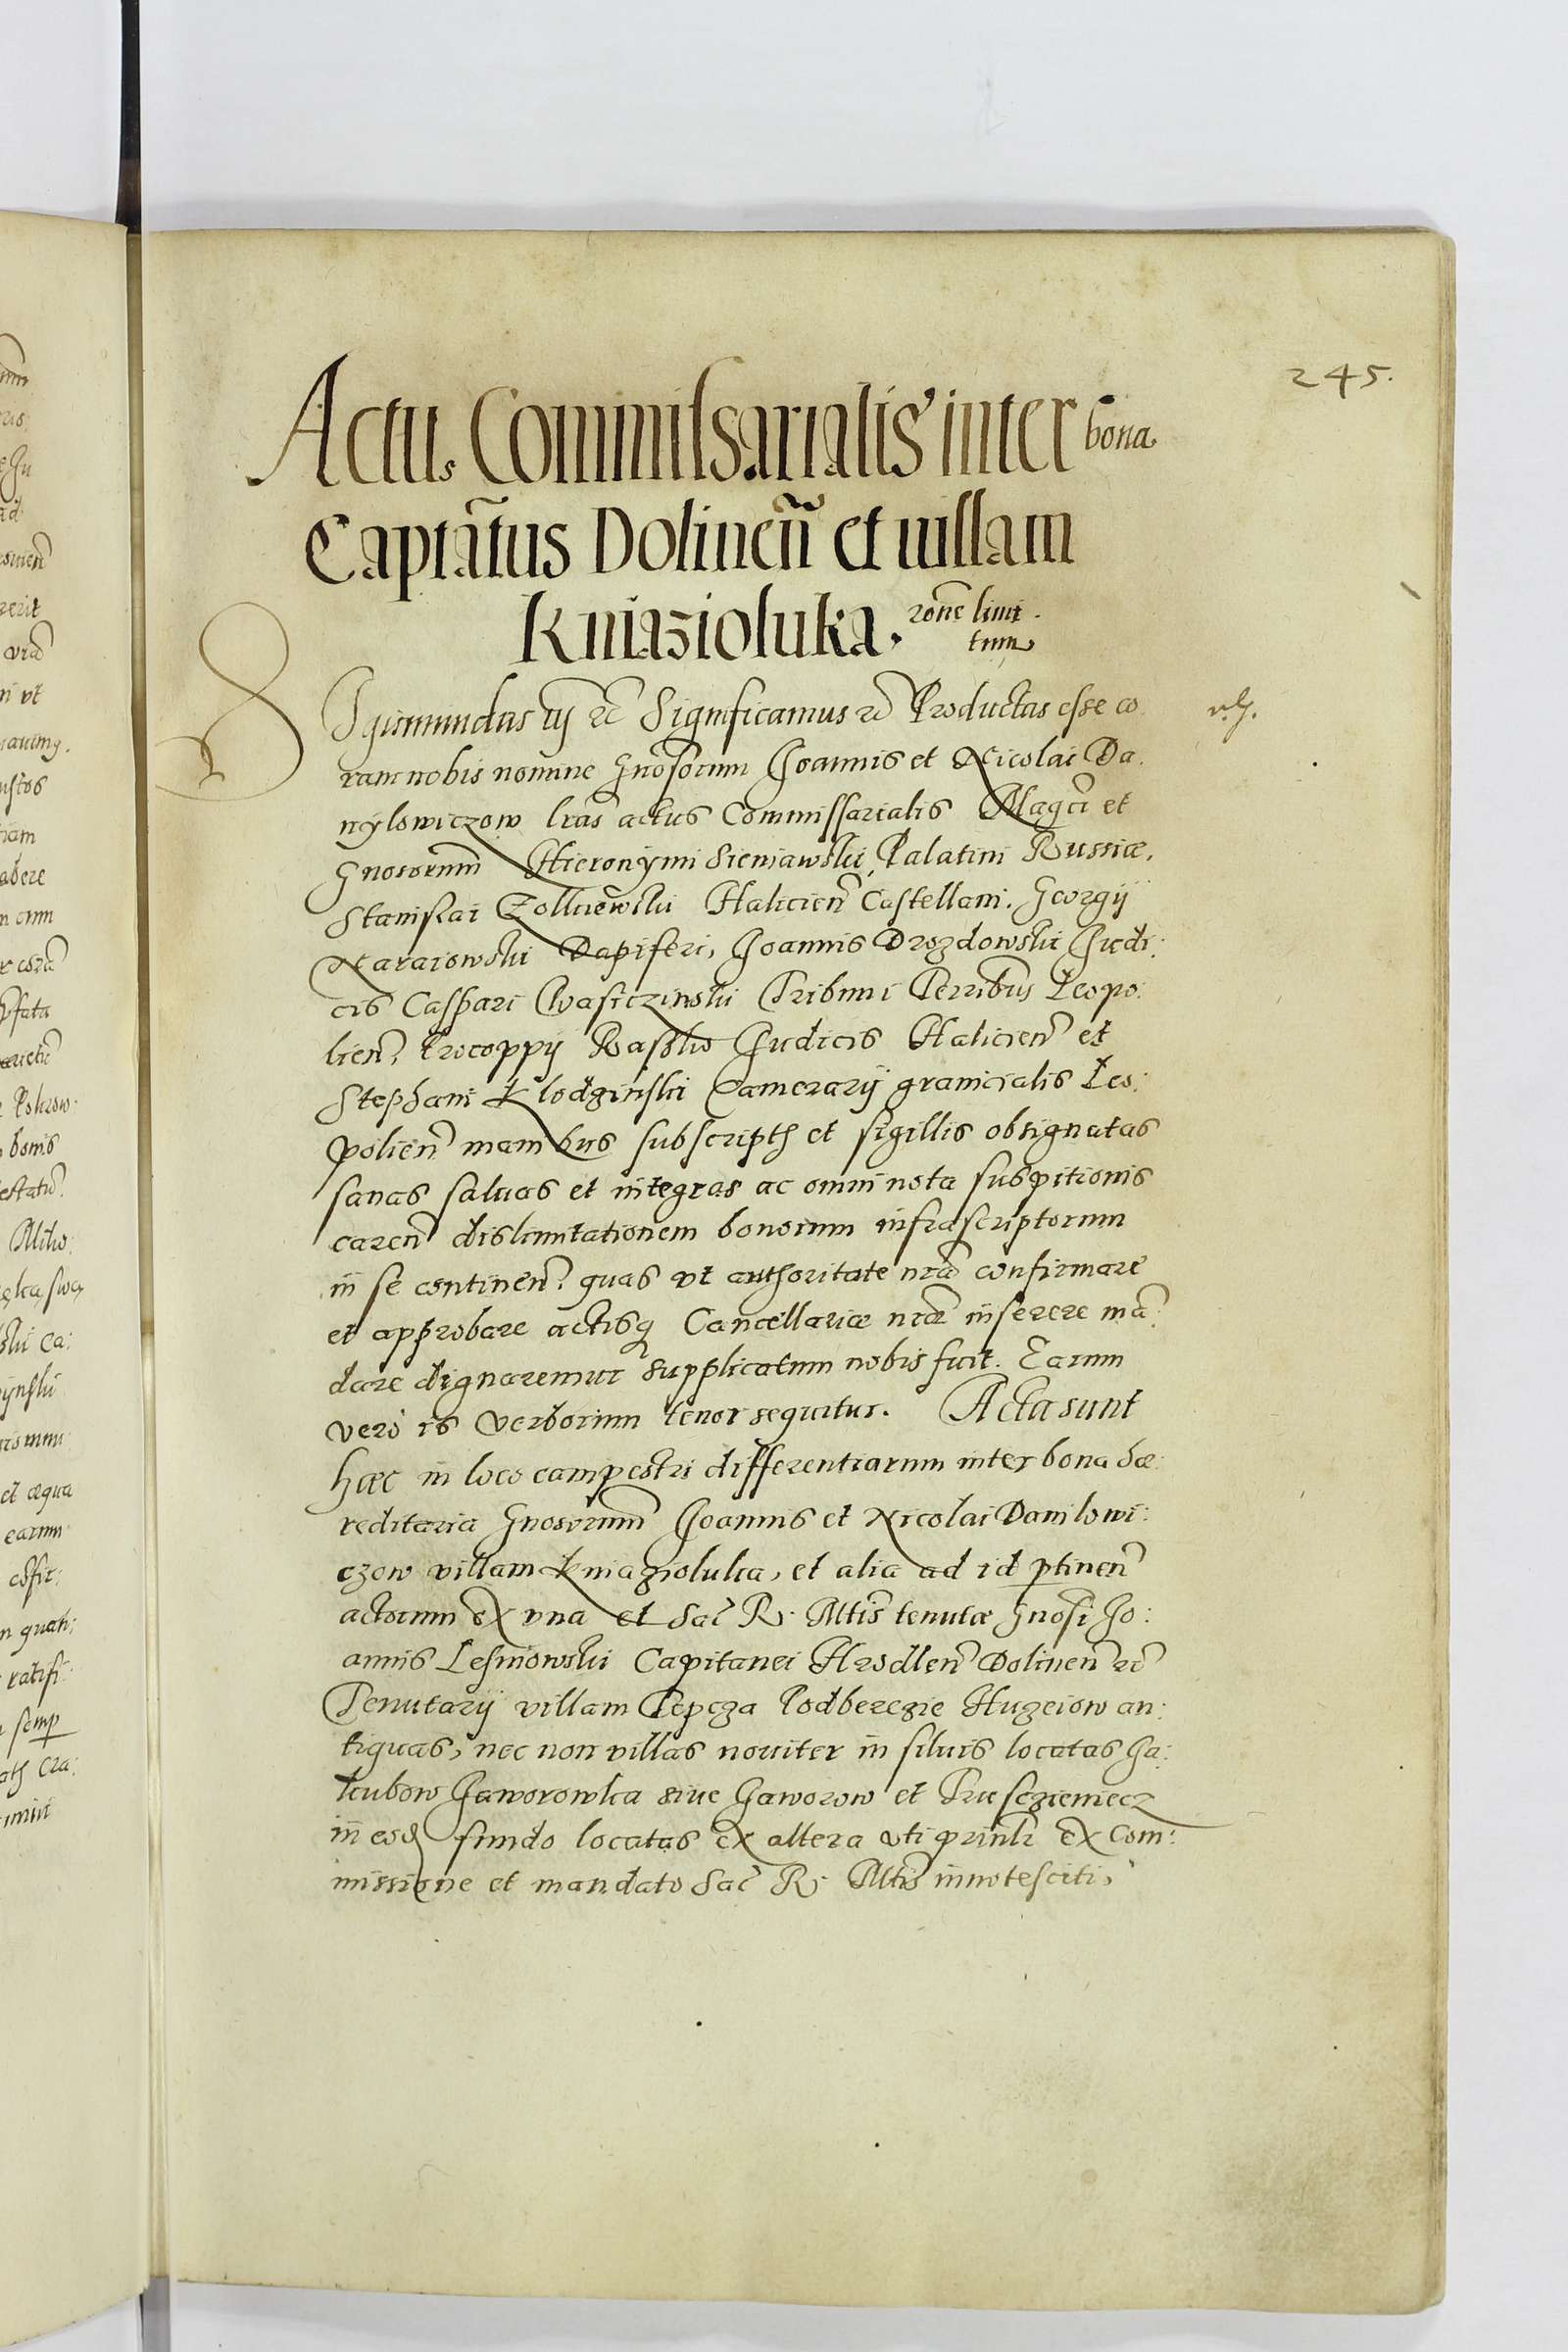 245.
Actus Commissarialis inter bona
Captãtus Dolineñ et uillam
Kniazioluka. rõne limi
tum
Sigismundus iij etc̃ Significamus etc̃ Productas esse co
ram nobis nomine Gnosorum Joannis et Nicolai Da.
nyłowiczow lrãs actus Commissarialis Magci et
Gnosorum Hieronymi Sieniawski Palatini Russiæ,
Stanislai Zolkiewski Halicieñ Castellani. Georgij
Naraiowski Dapiferi, Joannis Drozdowski Judi:
cis Caspari Wasiczinski Tribuni Terribus Leopo:
lieñ, Procopij Rasłko Judicis Halicieñ et
Stephani Klodzinski Camerarij granicialis Leo:
polieñ manibus subscriptas et sigillis obsignatas
sanas saluas et integras ac omni nota suspitionis
careñ dislimitationem bonorum infrascriptorum
in se contineñ. quas vt authoritate nrã confirmare
et approbare actisq Cancellariæ nræ inserere mã:
dare dignaremur supplicatum nobis fuit. Earum
vero is verborum tenor sequitur. Acta sunt
hæc in loco campestri differentiarum inter bona hæ:
reditaria Gnosorum Joannis et Nicolai Daniłowi:
czow villam Kniazioluka, et alia ad id ptineñ
actorum ex vna et Sac̃ R. Mtis tenutæ Gnosi Jo:
annis Lesniowski Capitanei Hrodleñ Dolineñ etc̃
Tenutarij villam Tepcza Podberezie Huzeiow an:
tiquas, nec non villas nouiter in siluis locatas Ja:
kubow Jaworowka siue Jaworow et Trusczieniecz
in eod fundo locatas ex altera vti prinli ex Com:
missione et mandato Sac̃ R. Mtis innotesciti,